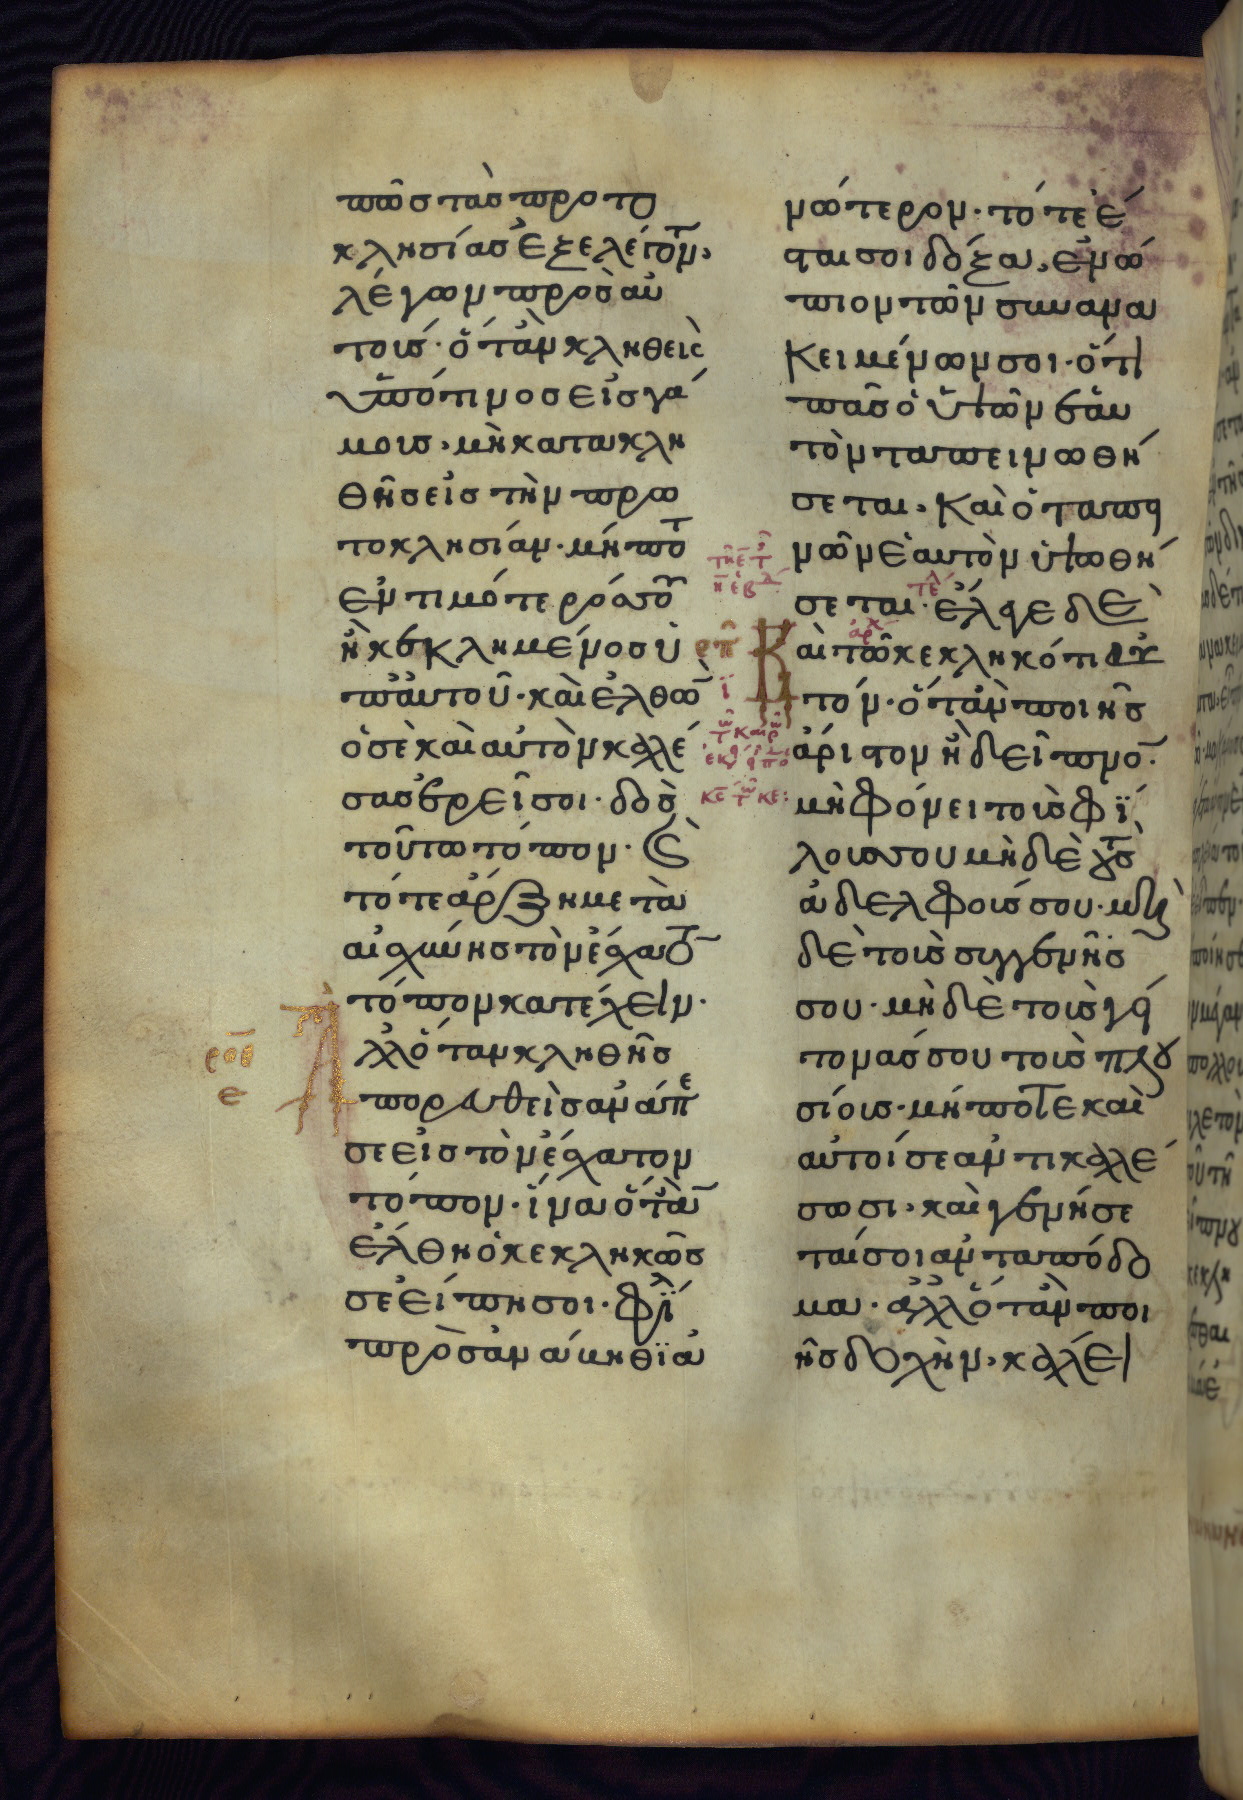 πῶς τὰς πρωτο
κλησίας ἐξελέγοντο,
λέγων πρὸς αὐ
τούς· ὅταν κληθεὶς
ὑπό τινος εἰς γά
μους, μὴ κατακλι
θῇς εἰς τὴν πρω
τοκλησίαν· μήποτε
ἐντιμότερός σου
ἢ κεκλημένος ὑ
π' αὐτοῦ· καὶ ἐλθὼν
ὁ σὲ καὶ αὐτὸν καλέ
σας ἐρεῖ σοι· δὸς
τούτω τόπον· καὶ
τότε ἄρξη μετὰ
αἰσχύνης τὸν ἔσχατον
τόπον κατέχειν·
Ἀλλ' ὅταν κληθῇς
πορευθεὶς ἀνάπε
σε εἰς τὸν ἔσχατον
τόπον· ἵνα ὅταν
ἔλθη ὁ κεκληκώς
σε εἴπη σοι· φίλε
προσανάβηθι ἀ
νώτερον· τότε ἔ
σται σοι δόξα, ἐνώ
πιον τῶν συνανα
κειμένων σοι· ὅτι
πᾶς ὁ ὑψῶν ἑαυ
τὸν ταπεινωθή
σεται, καὶ ὁ ταπει
νῶν ἑαυτὸν ὑψωθή
σεται· ἔλεγε δὲ
καὶ τῶ κεκληκότι αὐ
τόν· ὅταν ποιῇς
ἄριστον ἢ δεῖπνον·
μὴ φώνει τοὺς φί
λους σου μὴ δὲ τοὺς
ἀδελφούς σου· μὴ
δὲ τοὺς συγγενεῖς
σου· μὴ δὲ τοὺς γεί
τονας σου τοὺς πλου
σίους· μήποτε καὶ
αὐτοί σε ἀντικαλέ
σωσι, καὶ γενήσε
ταί σοι ἀνταπόδο
μα· ἀλλ' ὅταν ποι
ῇς δοχὴν, κάλει